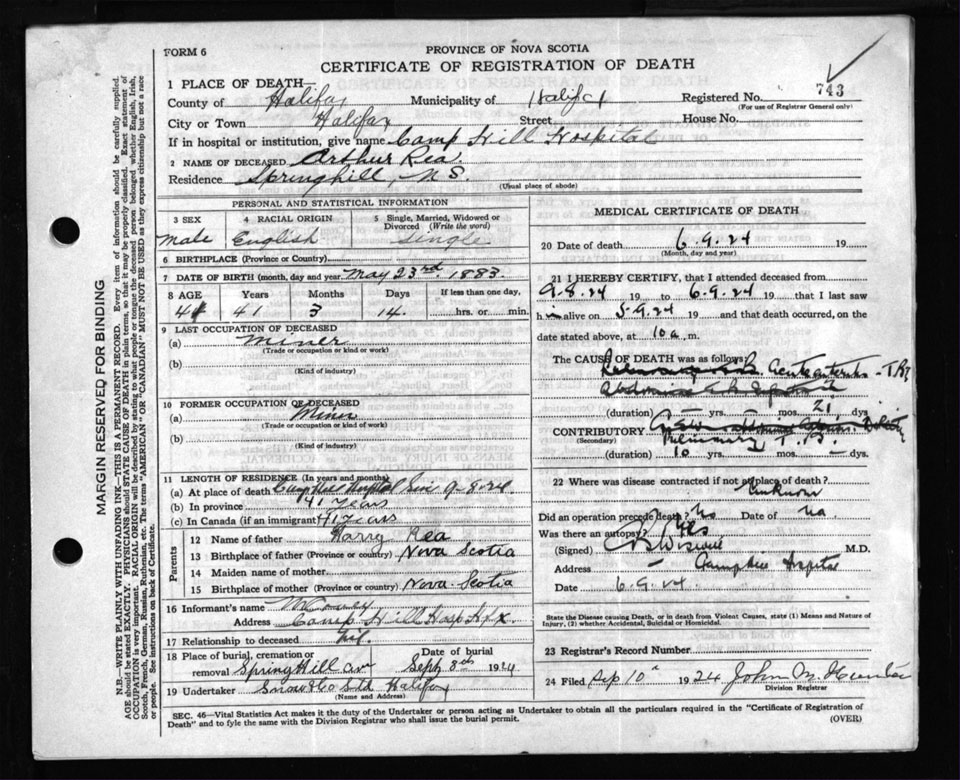 FORM 6
PROVINCE OF NOVA SCOTIA
CERTIFICATE OF REGISTRATION OF DEATH
1 PLACE OF DEATH—
County of Halifax Municipality of Halifax Registered No. 743
(For use of Registrar General only)
City or Town Halifax Street House No.
If in hospital or institution, give name Camp Hill Hospital
2 NAME OF DECEASED Arthur Rea
Residence Springhill, N.S.
(Usual place of abode)
PERSONAL AND STATISTICAL INFORMATION
3 SEX 4 RACIAL ORIGIN 5 Single, Married, Widowed or Divorced (Write the word)
Male English Single
6 BIRTHPLACE (Province or Country)
7 DATE OF BIRTH (month, day and year) May 23rd. 1883.
8 AGE Years Months Days If less than one day,
41 3 14. hrs. or min.
9 LAST OCCUPATION OF DECEASED
(a) Miner
(Trade or occupation or kind or work)
(b)
(Kind of industry)
10 FORMER OCCUPATION OF DECEASED
(a) Miner
(Trade or occupation or kind or work)
(b)
(Kind of industry)
11 LENGTH OF RESIDENCE (In years and months)
(a) At place of death Camp Hill Hospital Since 9-8-24
(b) In province 41 years
(c) In Canada (if an immigrant) 41 years
Parents
12 Name of father Harry Rea
13 Birthplace of father (Province or country) Nova Scotia
14 Maiden name of mother
15 Birthplace of mother (Province or country) Nova Scotia
16 Informant's name
Address Camp Hill Hosp Hfx.
17 Relationship to deceased nil.
18 Place of burial, cremation or removal Spring Hill Date of burial Sept 8th 1924
19 Undertaker Snow & Co Ltd Halifax
(Name and Address)
MEDICAL CERTIFICATE OF DEATH
20 Date of death 6.9.24 19
(Month, day and year)
21 I HEREBY CERTIFY, that I attended deceased from
9.8.24 19 to 6.9.24 19 that I last saw
h im alive on 5.9.24 19 and that death occurred, on
date stated above, at 10 a. m.
The CAUSE OF DEATH was as follows:
(duration) yrs. mos. 21 dys
CONTRIBUTORY
(Secondary) Pulmonary T.B.
(duration) 10 yrs. mos. dys.
22 Where was disease contracted if not at place of death?
Unknown
Did an operation precede death? No Date of na
Was there an autopsy? Yes
(Signed) M.D.
Address Camp Hill Hospital
Date 6.9.24
State the Disease causing Death, or in death from Violent Causes, state (1) Means and Nature of Injury, (2) whether Accidental, Suicidal or Homicidal.
23 Registrar's Record Number
24 Filed Sep 10 1924 John
Division Registrar
SEC. 46—Vital Statistics Act makes it the duty of the Undertaker or person acting as Undertaker to obtain all the particulars required in the "Certificate of Registration of Death" and to fyle the same with the Division Registrar who shall issue the burial permit.
(OVER)
MARGIN RESERVED FOR BINDING
N.B.—WRITE PLAINLY WITH UNFADING INK—THIS IS A PERMANENT RECORD. Every item of information should be carefully supplied.
AGE should be stated EXACTLY. PHYSICIANS should STATE CAUSE OF DEATH in plain terms, so that it may be properly classified. Exact statement of
OCCUPATION is very important. RACIAL ORIGIN will be described by stating to what people or tongue the deceased person belonged whether English, Irish,
Scotch, French, German, Russian, Ruthenian, etc. The terms "AMERICAN" or "CANADIAN" MUST NOT BE USED as they express citizenship but not a race
or people. See instructions on back of Certificate.